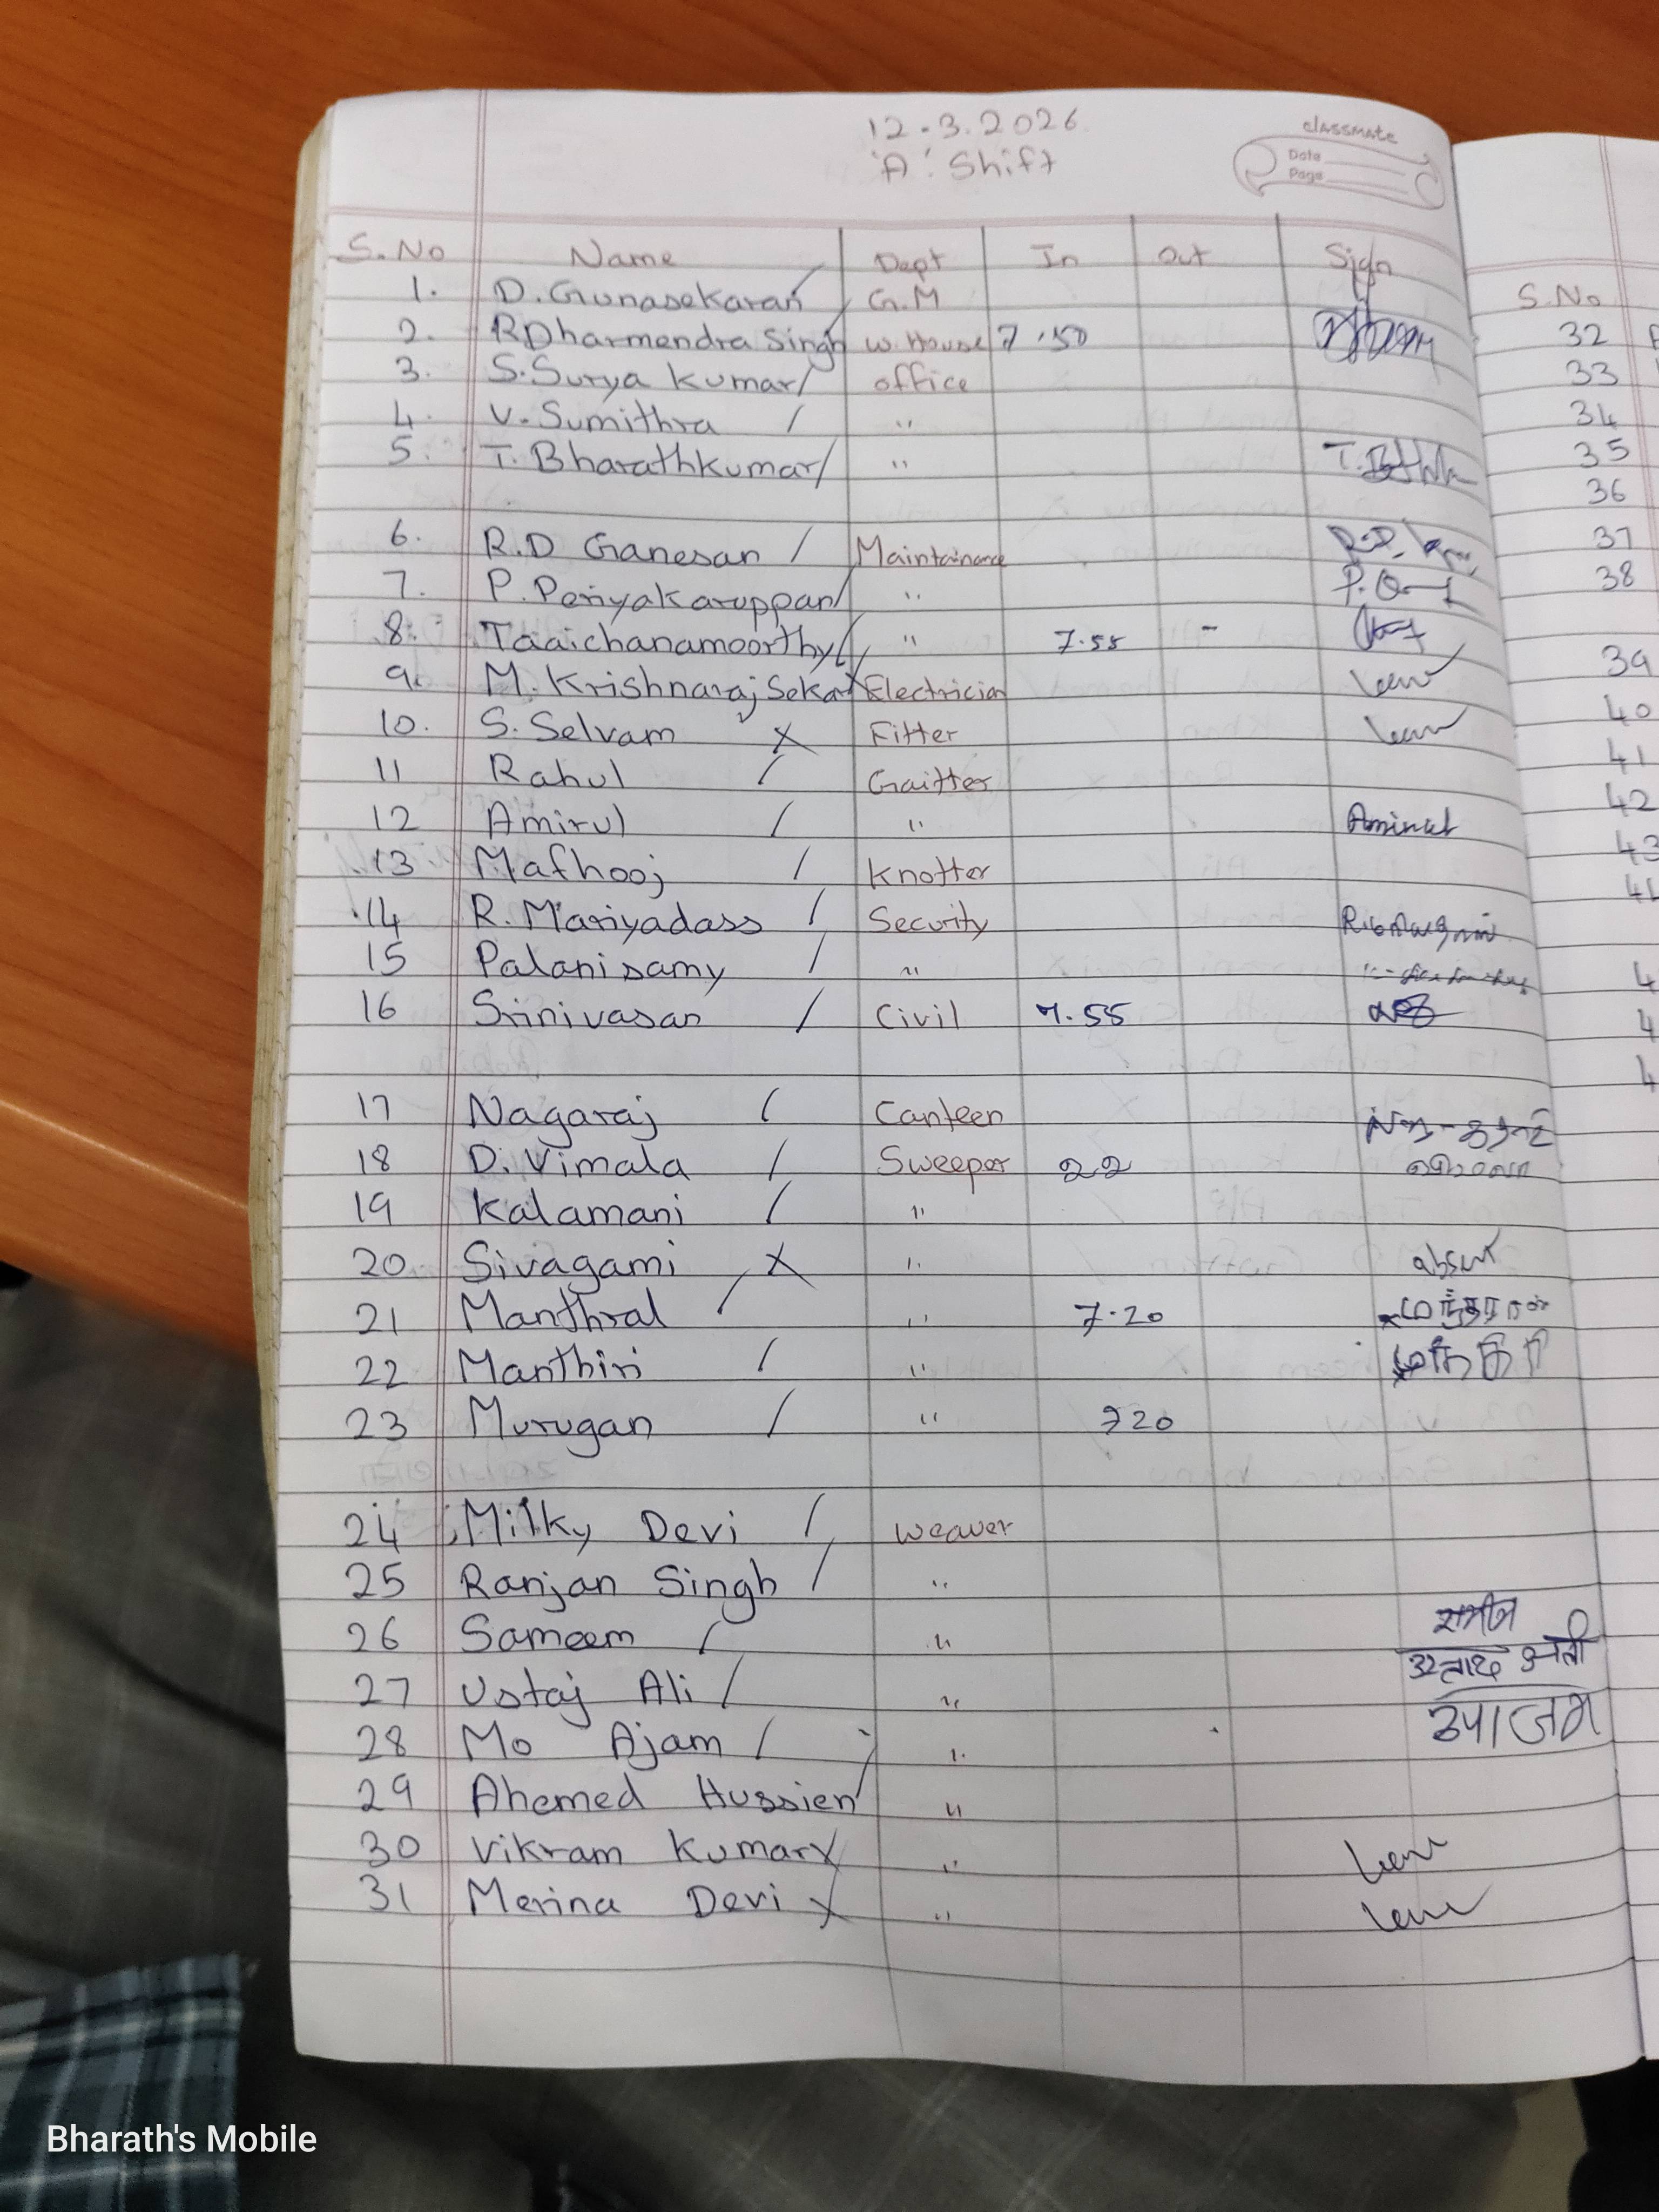 12.3.2026
'A' Shift
classmate
Date
Page
S.No Name Dept In Out Sign
1. D.Gunasekaran / G.M
2. R.Dharmendra Singh / W.House 7.50
3. S.Surya kumar / office
4. V.Sumithra / "
5. T.Bharathkumar / "
6. R.D Ganesan / Maintainance
7. P.Periyakaruppan / "
8. Taaichanamoorthy / " 7.55 -
9. M.Krishnaraj Sekar X Electrician Leave
10. S.Selvam X Fitter Leave
11 Rahul / Gaitter
12 Amirul / " Aminul
13 Mafhooj / Knotter
14 R.Mariyadass / Security
15 Palanisamy / "
16 Srinivasan / Civil 7.55
17 Nagaraj / Canteen
18 D.Vimala / Sweeper 22 விமலா
19 Kalamani / "
20 Sivagami X " absent
21 Manthral / " 7.20
22 Manthiri / " மந்திரி
23 Murugan / " 720
24 Milky Devi / Weaver
25 Ranjan Singh / "
26 Sameem / " समीम
27 Ustaj Ali / " उस्ताद अली
28 Mo Ajam / "
29 Ahemed Hussien / "
30 Vikram Kumar X " Leave
31 Merina Devi X " Leave
S.No
32
33
34
35
36
37
38
39
40
41
42
43
Bharath's Mobile